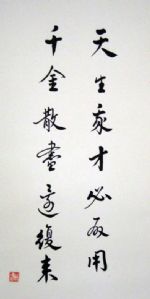 天生我才必有用
千金散盡還復来